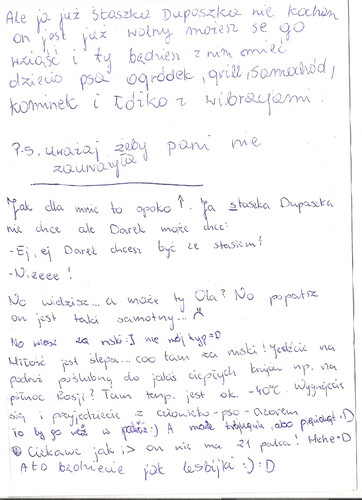 Ale ja już Staszka Dupaszka nie kocham
on jest już wolny możesz se go
wziąść i ty będziesz z nim mieć
dziecio psa ogródek, grill, samochód,
kominek i łóżko z wibracjami.
P.S. Uważaj żeby pani nie
zauważyła
Jak dla mnie to spoko ↑. Ja Staszka Dupaszka
nie chce ale Darek może chce:
-Ej, ej Darek chcesz być ze stasiem?
-Nieeee!
No widzisz... a może ty Ola? No popatrz
on jest taki samotny...
No wiesz za niski :] nie mój typ =D
Miłość jest ślepa... coo tam za niski! Jedźcie na
podróż poślubną do jakiś ciepłych krajów np. na
północ Rosji? Tam temp. jest ok. -40°C. Wygrzejecie
się i przyjedziecie z
To by go wziął w podróż :) A może , albo :D
Ciekawe jak i> on nie ma 21 palca! Hehe :D
A to będziecie jak lesbijki :) :D